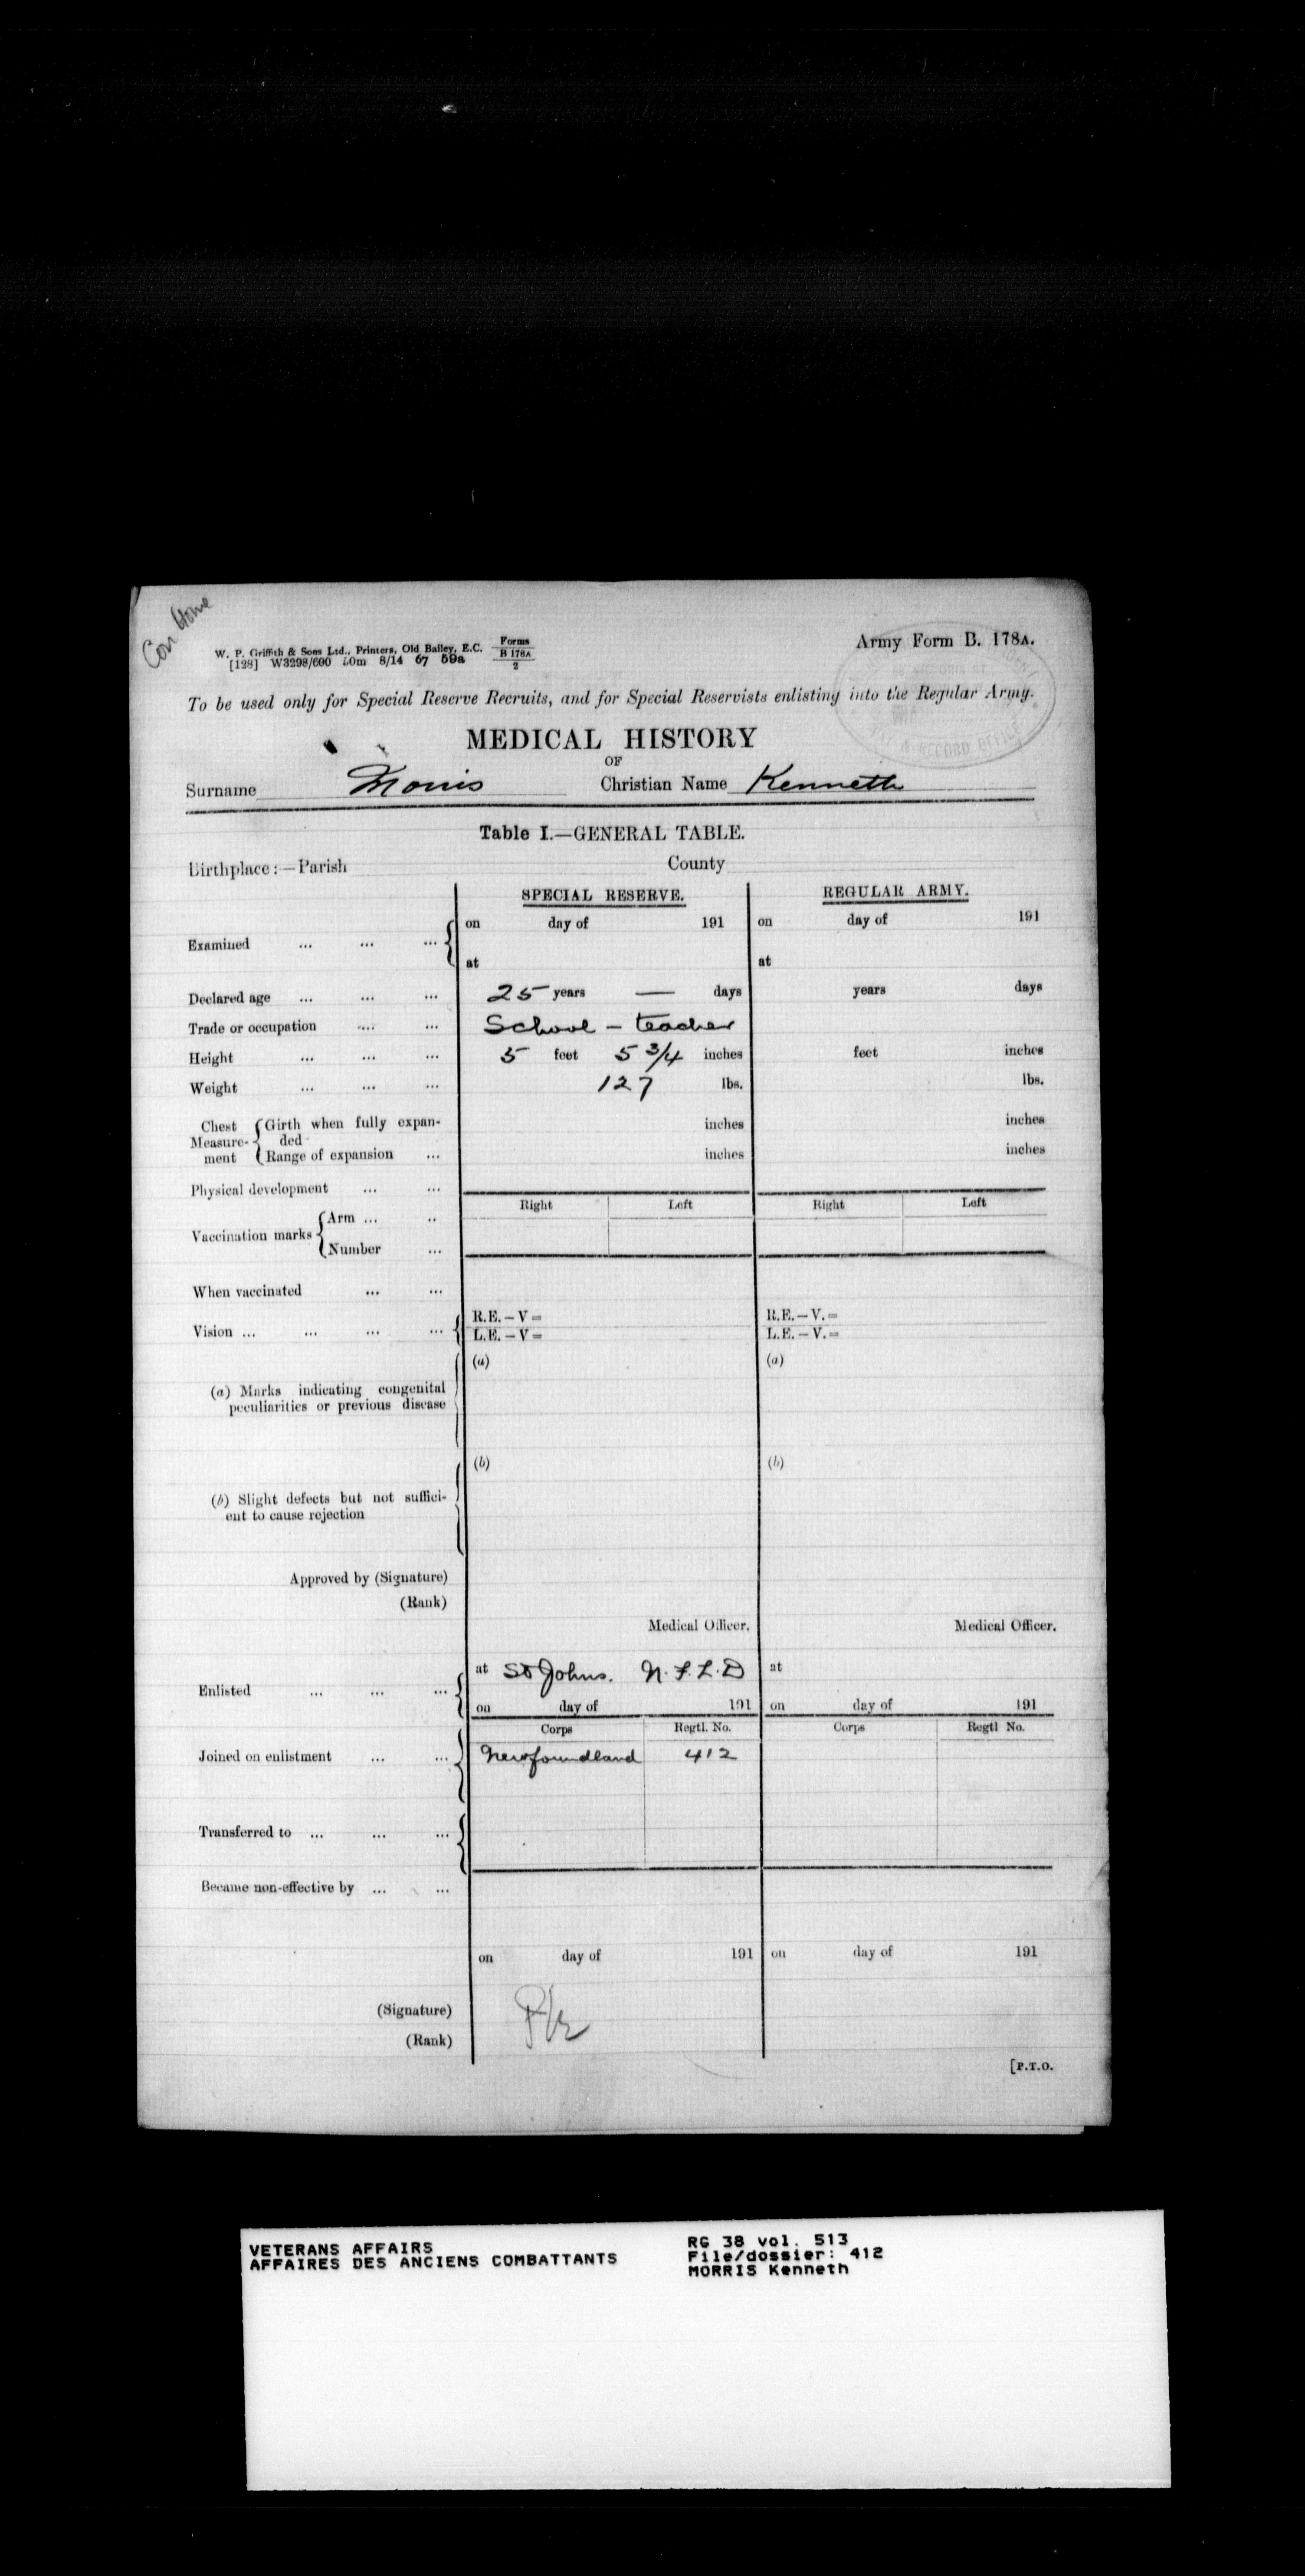 Con Home
W. P. Griffith & Sons Ltd., Printers, Old Bailey, E.C. Forms B 178A 2
[128] W3298/600 50m 8/14 67 59a
Army Form B. 178A.
To be used only for Special Reserve Recruits, and for Special Reservists enlisting into the Regular Army.
MEDICAL HISTORY
OF
Surname Morris Christian Name Kenneth
Table I.—GENERAL TABLE.
Birthplace:—Parish County
SPECIAL RESERVE. REGULAR ARMY.
Examined ... ... ... on day of 191 on day of 191
at at
Declared age ... ... ... 25 years — days years days
Trade or occupation ... ... School - teacher
Height ... ... ... 5 feet 5 3/4 inches feet inches
Weight ... ... ... 127 lbs. lbs.
Chest Measurement { Girth when fully expanded inches inches
Range of expansion ... inches inches
Physical development ... ...
Right Left Right Left
Vaccination marks { Arm ... ..
Number ...
When vaccinated ... ...
Vision ... ... ... ... R.E.—V= R.E.—V.=
L.E.—V= L.E.—V.=
(a) Marks indicating congenital peculiarities or previous disease (a) (a)
(b) Slight defects but not sufficient to cause rejection (b) (b)
Approved by (Signature)
(Rank)
Medical Officer. Medical Officer.
Enlisted ... ... ... at St Johns. N.F.L.D at
on day of 191 on day of 191
Corps Regtl. No. Corps Regtl No.
Joined on enlistment ... ... Newfoundland 412
Transferred to ... ... ...
Became non-effective by ... ...
on day of 191 on day of 191
(Signature)
(Rank)
[P.T.O.
VETERANS AFFAIRS
AFFAIRES DES ANCIENS COMBATTANTS
RG 38 vol. 513
File/dossier: 412
MORRIS Kenneth